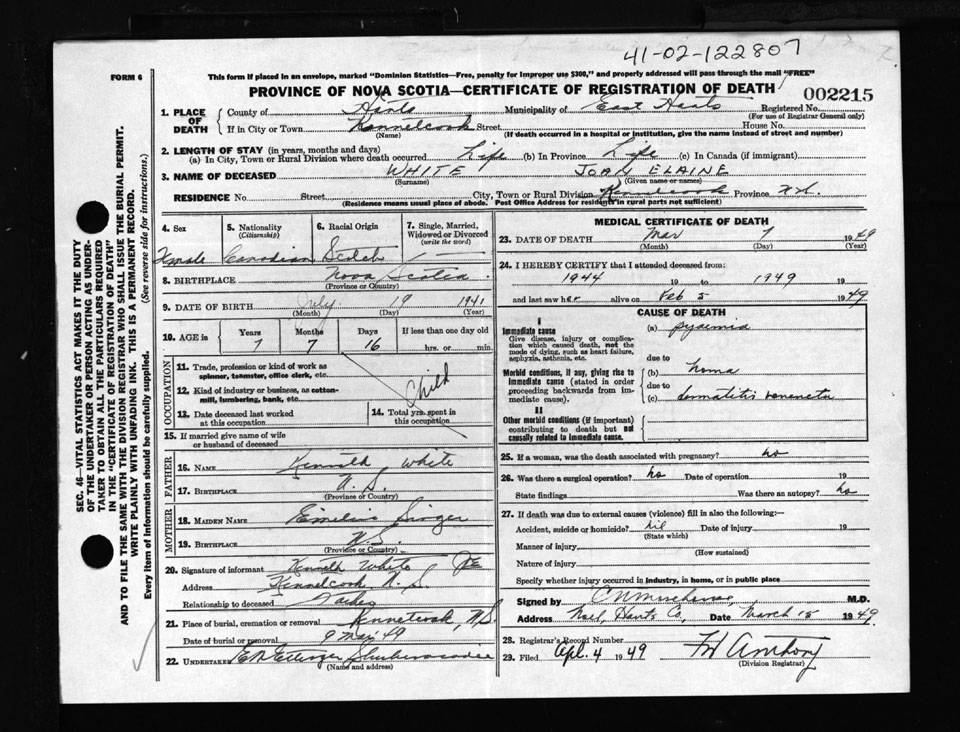 41-02-122807
FORM 6
This form if placed in an envelope, marked "Dominion Statistics—Free, penalty for improper use $300," and properly addressed will pass through the mail "FREE"
PROVINCE OF NOVA SCOTIA—CERTIFICATE OF REGISTRATION OF DEATH
002215
1. PLACE OF DEATH
County of Hants Municipality of East Hants Registered No.
(For use of Registrar General only)
If in City or Town Kennetcook Street House No.
(Name) (If death occurred in a hospital or institution, give the name instead of street and number)
2. LENGTH OF STAY (in years, months and days)
(a) In City, Town or Rural Division where death occurred Life (b) In Province Life (c) In Canada (if immigrant)
3. NAME OF DECEASED WHITE JOAN ELAINE
(Surname) (Given name or names)
RESIDENCE No. Street City, Town or Rural Division Kennetcook Province N.S.
(Residence means usual place of abode. Post Office Address for residents in rural parts not sufficient)
4. Sex Female
5. Nationality (Citizenship) Canadian
6. Racial Origin Scotch
7. Single, Married, Widowed or Divorced (write the word)
8. BIRTHPLACE Nova Scotia
(Province or Country)
9. DATE OF BIRTH July 19 1941
(Month) (Day) (Year)
10. AGE is Years Months Days If less than one day old
7 7 16 hrs. or min.
OCCUPATION
11. Trade, profession or kind of work as spinner, teamster, office clerk, etc.
12. Kind of industry or business, as cotton-mill, lumbering, bank, etc.
Child
13. Date deceased last worked at this occupation
14. Total yrs. spent in this occupation
15. If married give name of wife or husband of deceased
FATHER
16. NAME Kenneth White
17. BIRTHPLACE N.S.
(Province or Country)
MOTHER
18. MAIDEN NAME Emeline Singer
19. BIRTHPLACE N.S.
(Province or Country)
20. Signature of informant Kenneth White
Address Kennetcook N.S
Relationship to deceased Father
21. Place of burial, cremation or removal Kennetcook, N.S.
Date of burial or removal 9 Mar 49
22. UNDERTAKER E Ettinger Shubenacadie
(Name and address)
MEDICAL CERTIFICATE OF DEATH
23. DATE OF DEATH Mar 7 1949
(Month) (Day) (Year)
24. I HEREBY CERTIFY that I attended deceased from:
1944 19 to 1949 19
and last saw her alive on Feb 5 1949
CAUSE OF DEATH
I
Immediate cause
Give disease, injury or complication which caused death, not the mode of dying, such as heart failure, asphyxia, asthenia, etc.
(a) pyaemia
due to
Morbid conditions, if any, giving rise to immediate cause (stated in order proceeding backwards from immediate cause).
(b)
due to
(c) dermatitis venenata
II
Other morbid conditions (if important) contributing to death but not causally related to immediate cause.
25. If a woman, was the death associated with pregnancy? no
26. Was there a surgical operation? no Date of operation 19
State findings Was there an autopsy? no
27. If death was due to external causes (violence) fill in also the following:—
Accident, suicide or homicide? nil Date of injury 19
(State which)
Manner of injury
(How sustained)
Nature of injury
Specify whether injury occurred in industry, in home, or in public place
Signed by M.D.
Address Noel, Hants Co, Date March 15 1949
28. Registrar's Record Number
29. Filed Apl. 4 1949 Anthony
(Division Registrar)
SEC. 46—VITAL STATISTICS ACT MAKES IT THE DUTY
OF THE UNDERTAKER OR PERSON ACTING AS UNDER-
TAKER TO OBTAIN ALL THE PARTICULARS REQUIRED
IN THE "CERTIFICATE OF REGISTRATION OF DEATH"
AND TO FILE THE SAME WITH THE DIVISION REGISTRAR WHO SHALL ISSUE THE BURIAL PERMIT.
WRITE PLAINLY WITH UNFADING INK. THIS IS A PERMANENT RECORD.
Every item of Information should be carefully supplied. (See reverse side for instructions.)